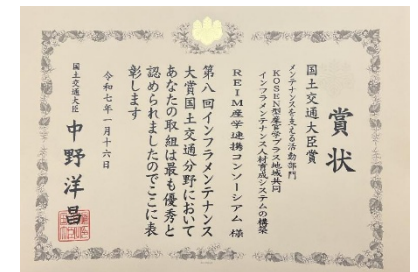 賞状
国土交通大臣賞
メンテナンスを支える活動部門
KOSEN型産官学プラス地域共同
インフラメンテナンス人材育成システムの構築
REIM産学連携コンソーシアム 様
第八回インフラメンテナンス
大賞国土交通分野において
あなたの取組は最も優秀と
認められましたのでここに表
彰します
令和七年一月十六日
国土交通大臣 中野洋昌